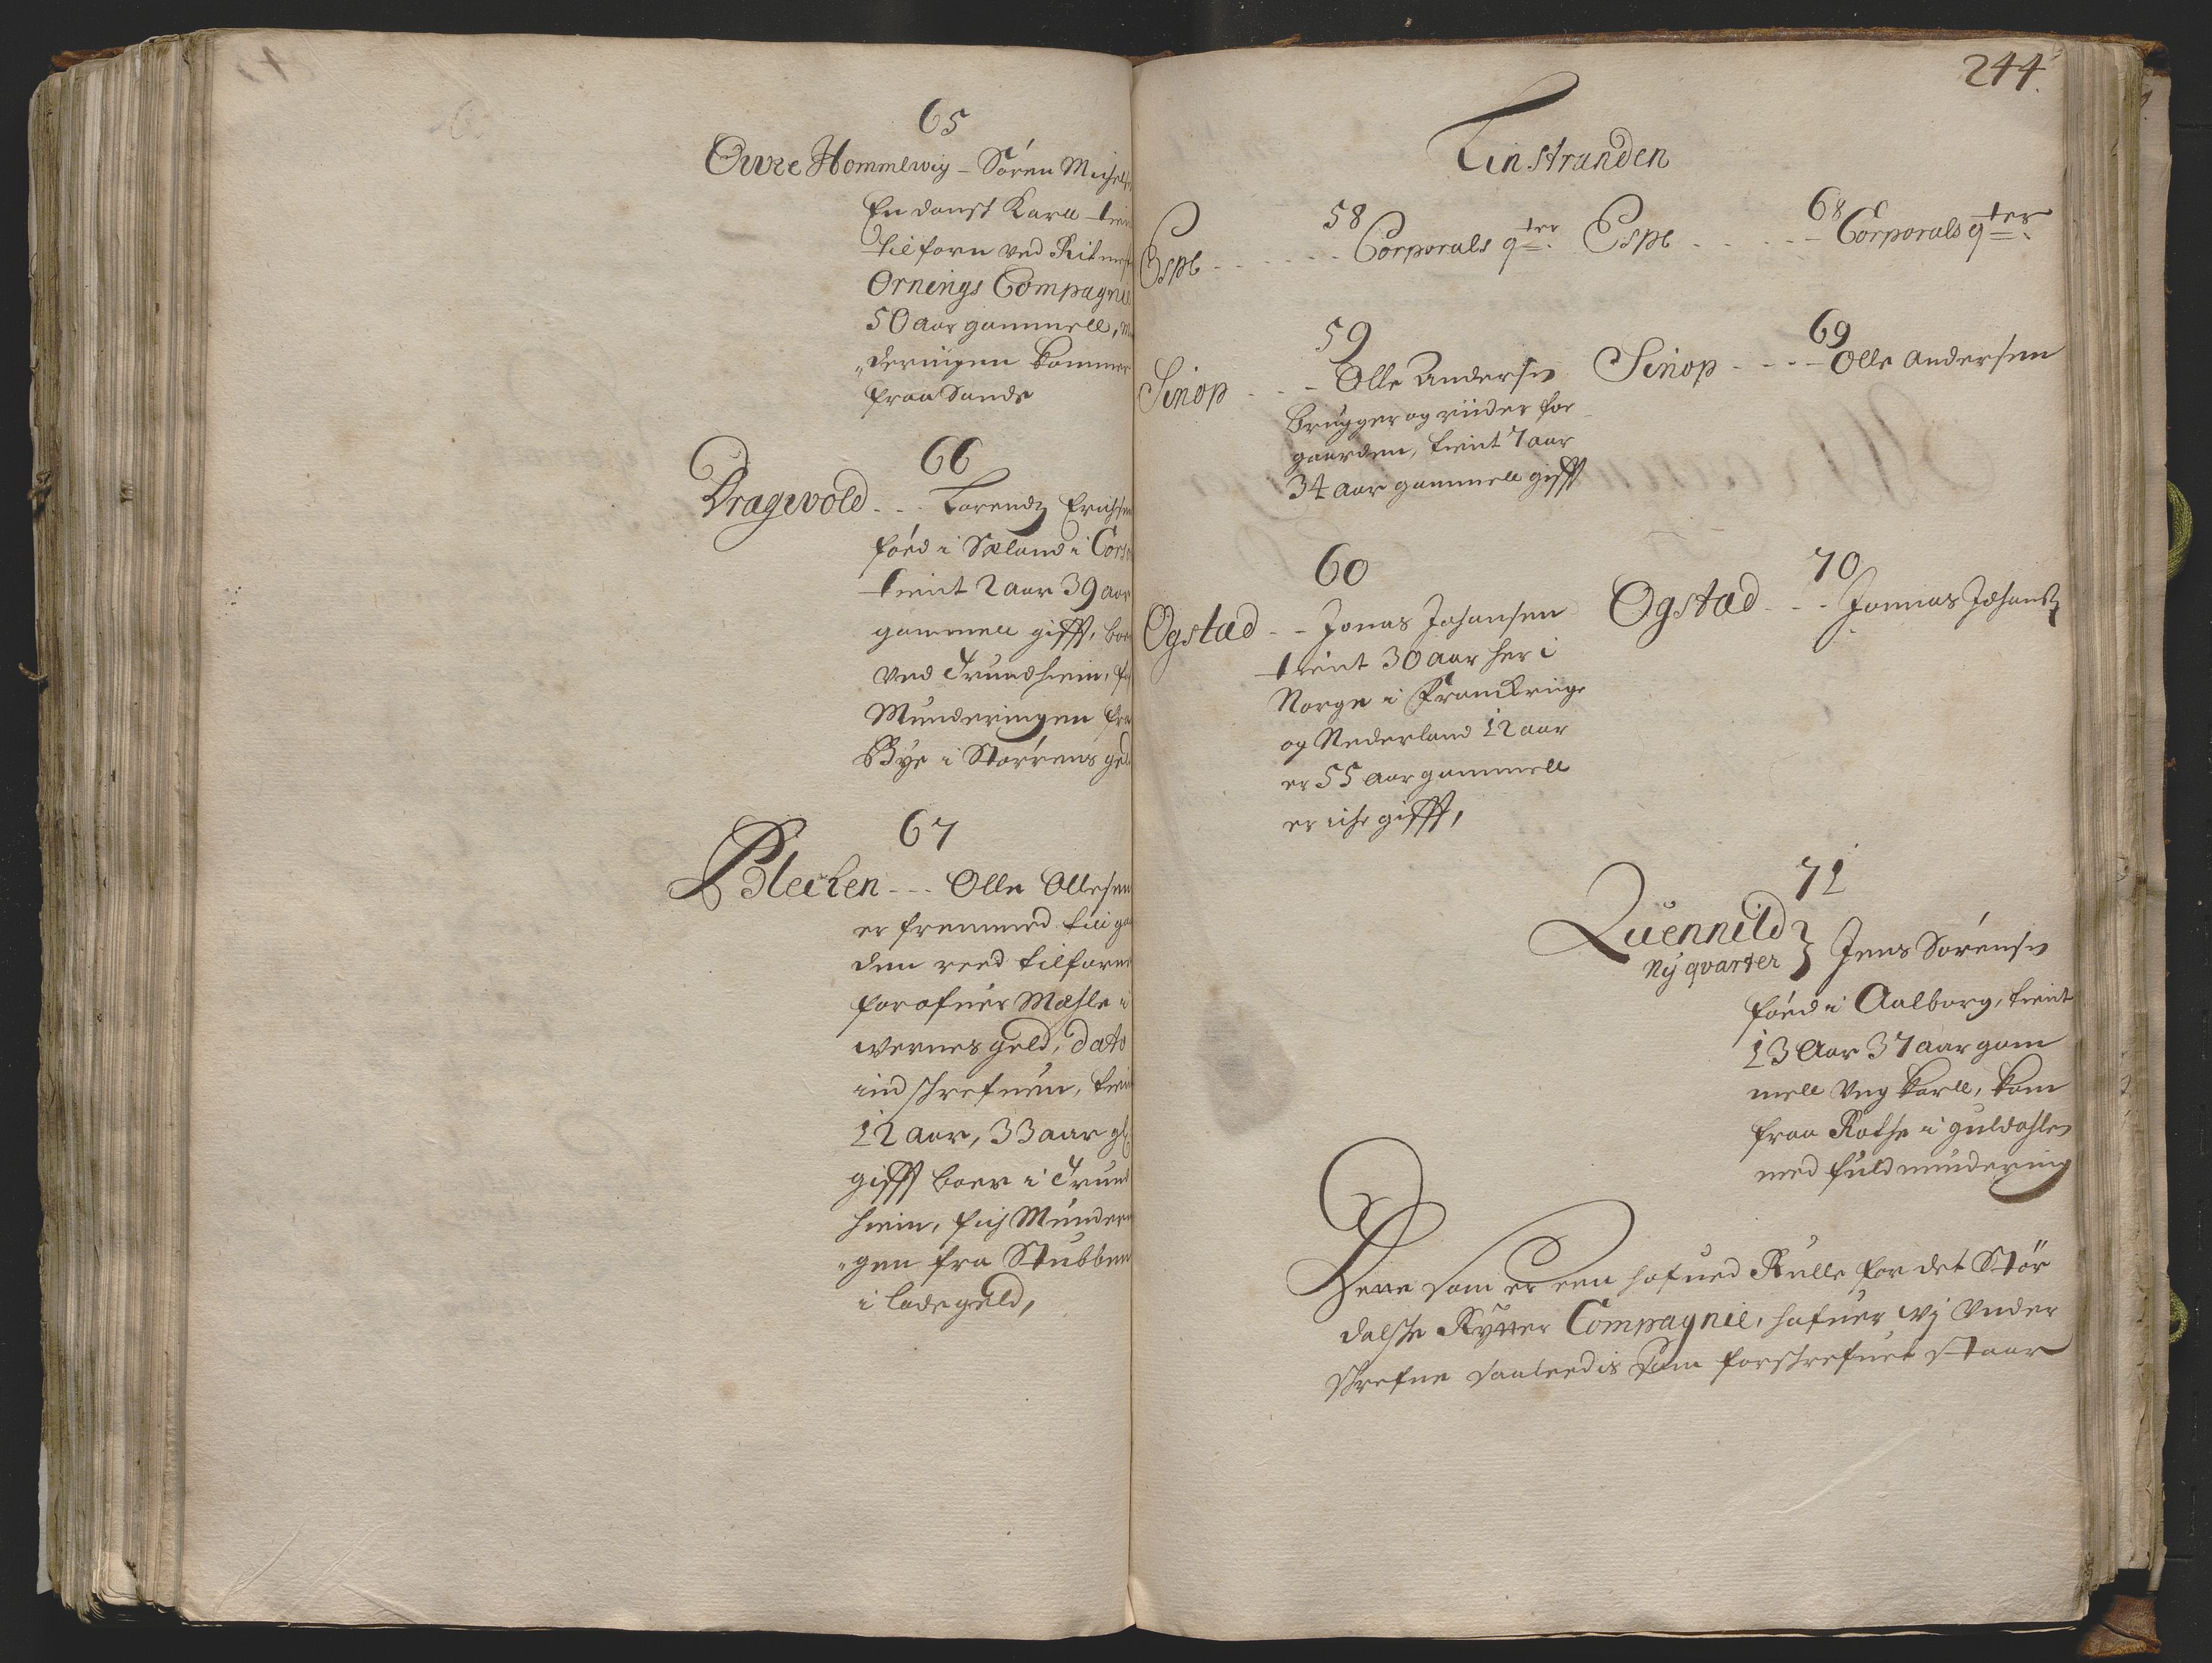 65
Owre Hommelwig - Sören Michels
En dansk Karll tien
tilforn ved Ritmest
Ornings Compagnie
50 aar gammell, M
deringen kommer
fraa Sande
66
Dragwold - - - Lorendz Erichsen
föed i Sæland i Cors
tient 2 aar 39 aar
gammell gifft, boer
ved Trundhiem, f
Munderingen fra
Bye i Störrens geld
67
Blecken - - - Olle Ollesen
er fremmed till ga
den reed tilforne
for ofuer Mæhle i
wernes geld, dato
ind schrefuen, tien
12 aar, 33 aar gl
gifft boer i Trund
hiem, fich Munderi
gen fra Stubben
i lade geld,
244.
Tinstranden
58
Espe - - - - - - Corporals qter
59
Sinop - - Olle Andersen
brugger og riider for
gaarden, tient 7 aar
34 aar gammell gifft
60
Ogstad - - Jonas Johansen
tient 30 aar her i
Norge i Franckrige
og Nederland 12 aar
er 55 aar gammell
er iche gifft,
68
Espe - - - - - - Corporals qter
69
Sinop - - - - Olle Andersen
70
Ogstad - - - Jonnas Johansen
71
Quennild
Ny qvarter } Jens Sörensen
föed i Aalborg, tient
13 Aar 37 aar gam
mell Ung karll, kom
fraa Rothe i guldahlen
med fuld mundering
Dene som er een hofued Rulle for det Stör
dalske Rytter Compagnie, hafuer wj Under
skrefne saaleedis som forskrefuet staar